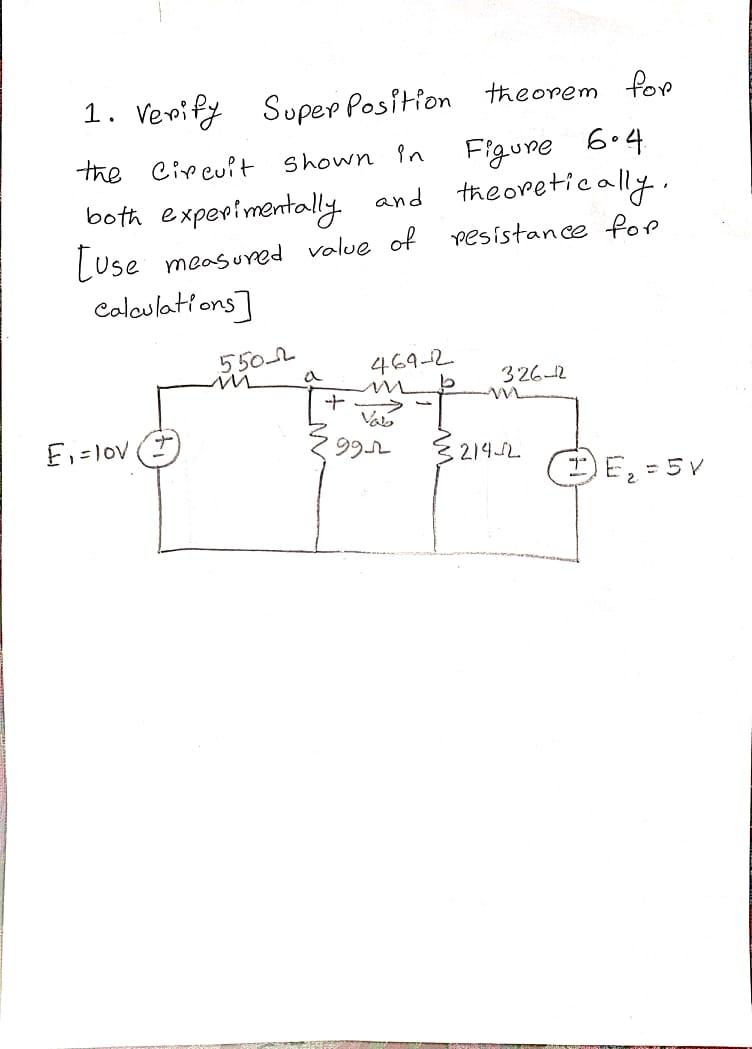 1. Verify Superposition theorem for
the circuit shown in Figure 6.4
both experimentally and theoretically.
[Use measured value of resistance for
calculations]
550Ω
a
469Ω
b
326Ω
+
Vab
-
E₁=10V
+
-
99Ω
214Ω
+
-
E₂ = 5V